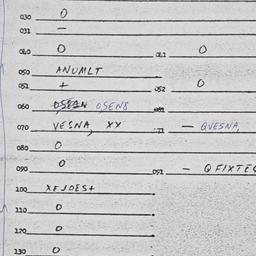 030 0
031 —
040 0 041 0
050 ANUMLT
051 + 052 0
060 OSENS
070 VESNA, XY 071 — QVESNA,
080 0
090 0 091 — QFIXTE
100 XFJDES+
110 0
120 0
130 0